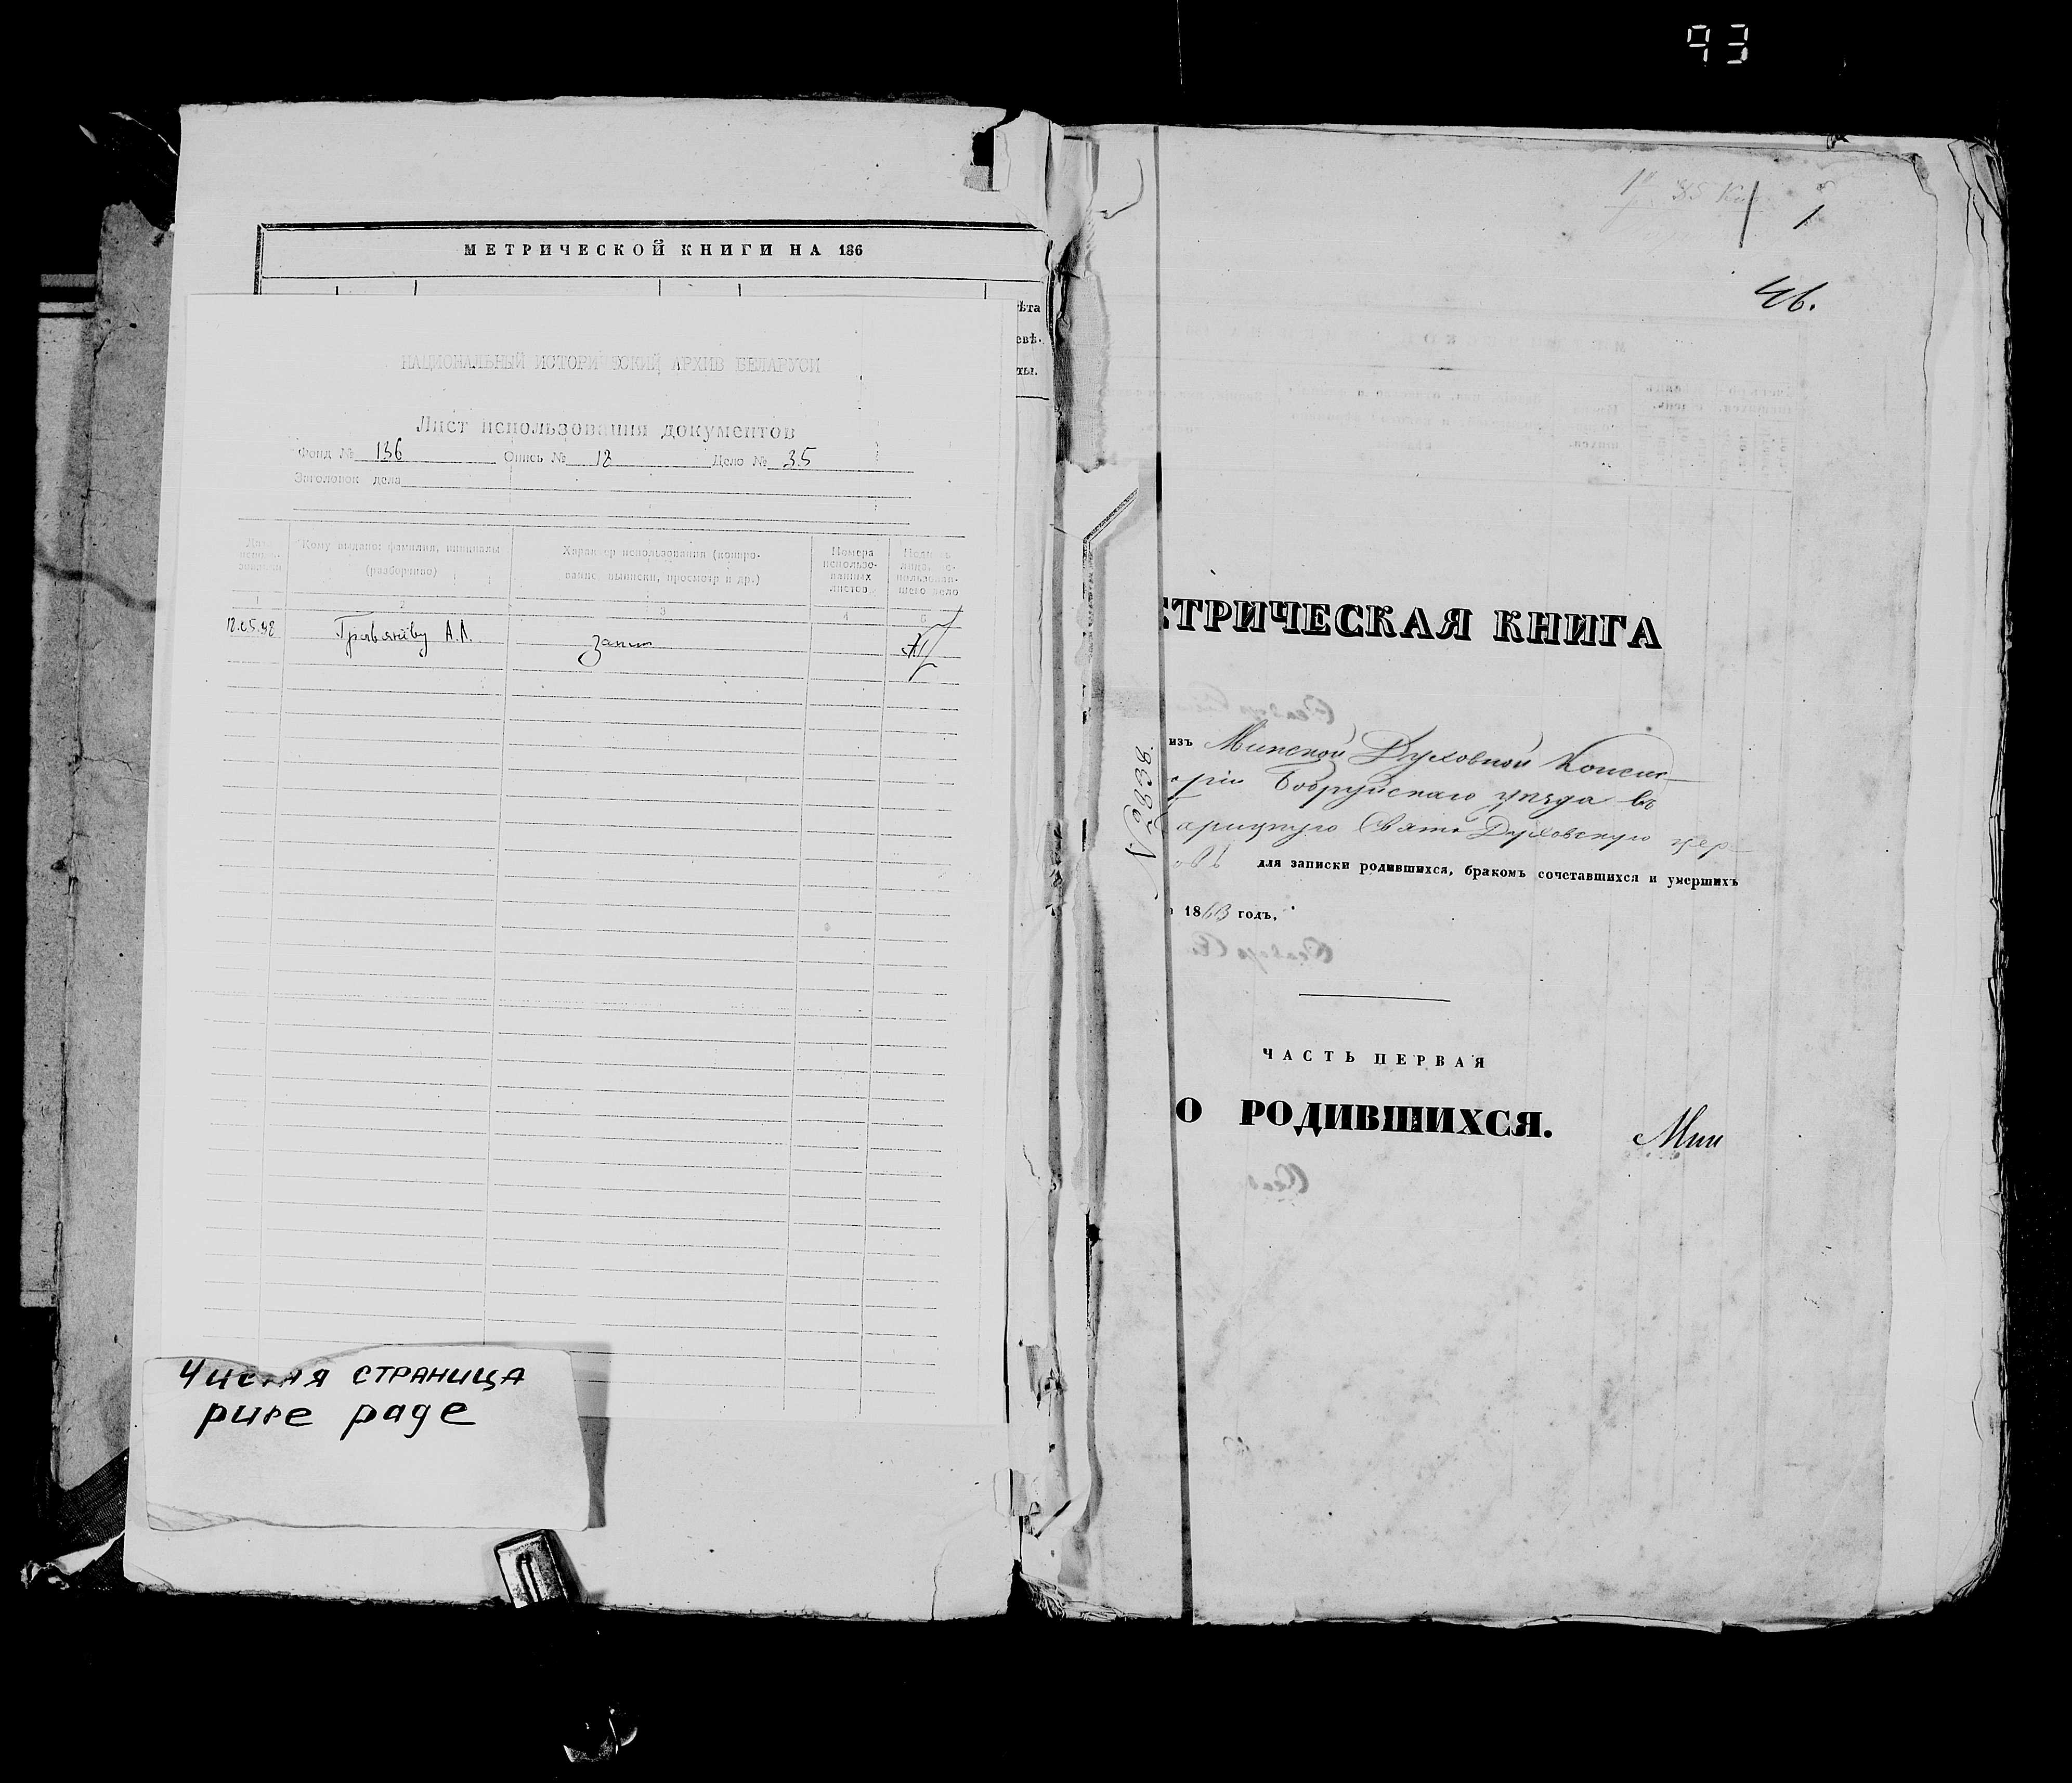 93
МЕТРИЧЕСКОЙ КНИГИ НА 186
ѣта
евѣ.
ты.
НАЦИОНАЛЬНЫЙ ИСТОРИЧЕСКИЙ АРХИВ БЕЛАРУСИ
Лист использования документов
Фонд № 136 Опись № 12 Дело № 35
Заголовок дела
Дата использования
Кому выдано: фамилия, инициалы (разборчиво)
Характер использования (копирование, выписки, просмотр и др.)
Номера использо-
ванных
листов
Подпись
лица, ис-
пользовав-
шего дело
1 2 3 4 5
12.05.98 А.Л.
Чистая страница
pure page
1
46.
ЕТРИЧЕСКАЯ КНИГА
№ 2838.
изъ Минской Духовной Консис-
оріи Бобруйскаго уѣзда въ
арицкую Свято Духовскую цер-
овь для записки родившихся, бракомъ сочетавшихся и умершихъ
1863 годъ.
ЧАСТЬ ПЕРВАЯ
О РОДИВШИХСЯ.
Мин